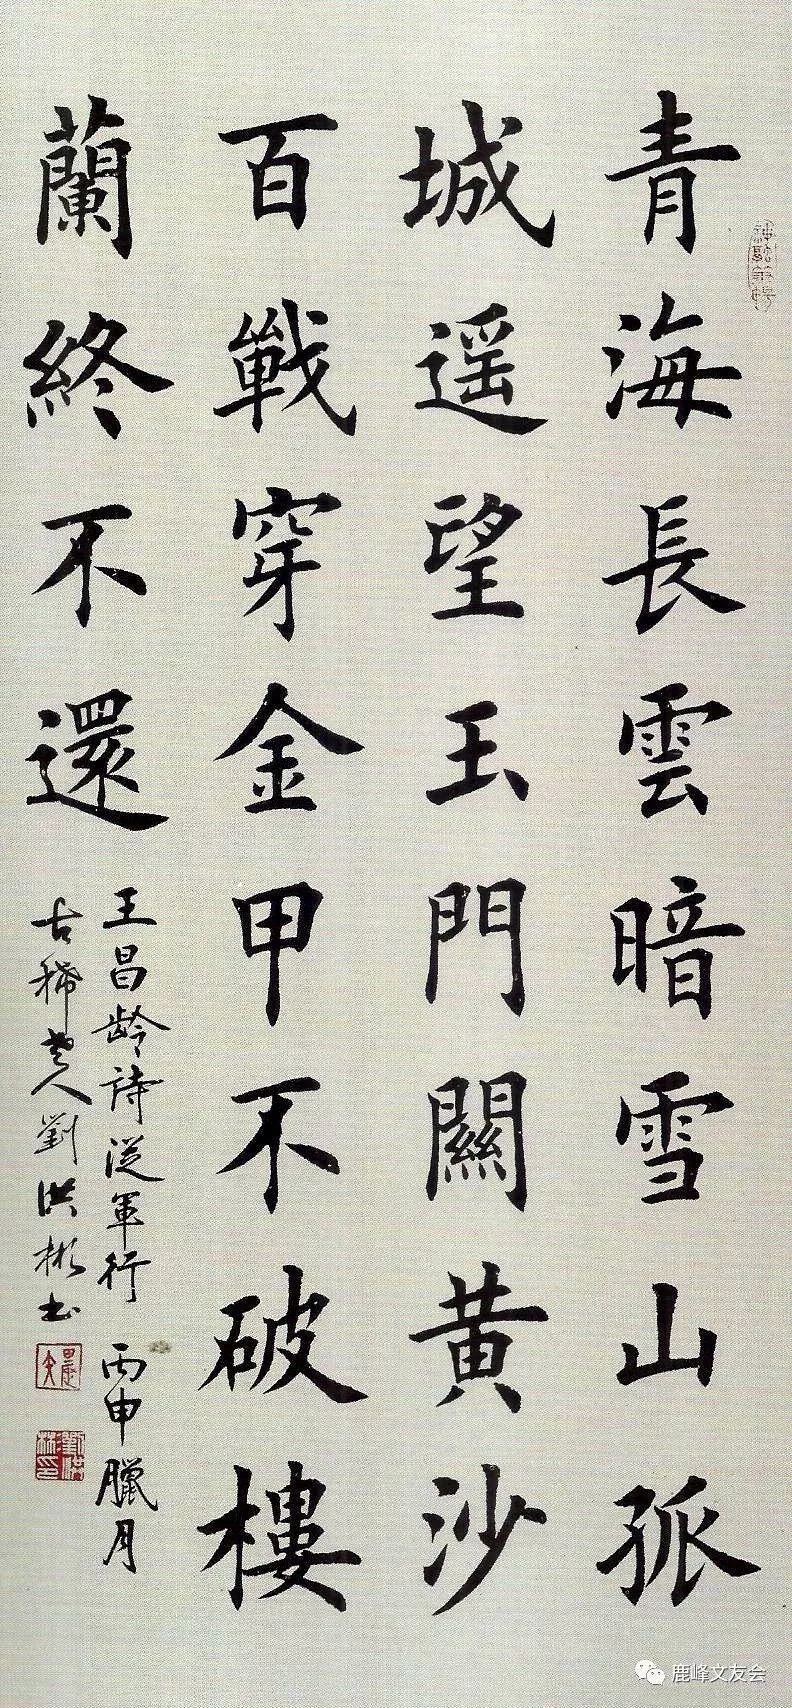 青海長雲暗雪山孤
城遥望玉門關黄沙
百戰穿金甲不破樓
蘭終不還
王昌龄詩從軍行 丙申臘月
古稀老人劉洪彬书
鹿峰文友会